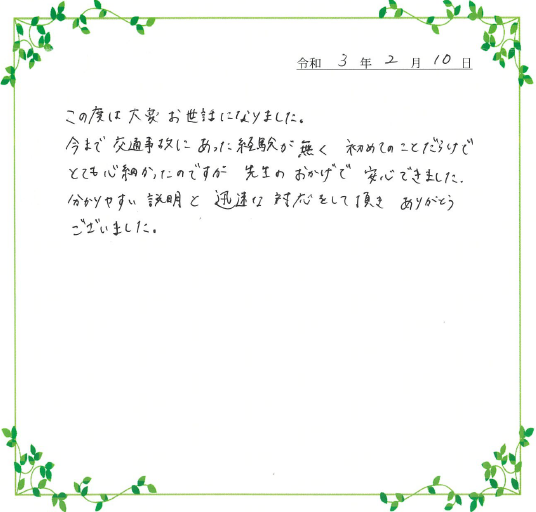 令和 3 年 2 月 10 日
この度は大変お世話になりました。
今まで交通事故にあった経験が無く 初めてのことだらけで
とても心細かったのですが 先生のおかげで 安心できました。
分かりやすい説明と迅速な対応をして頂き ありがとう
ございました。